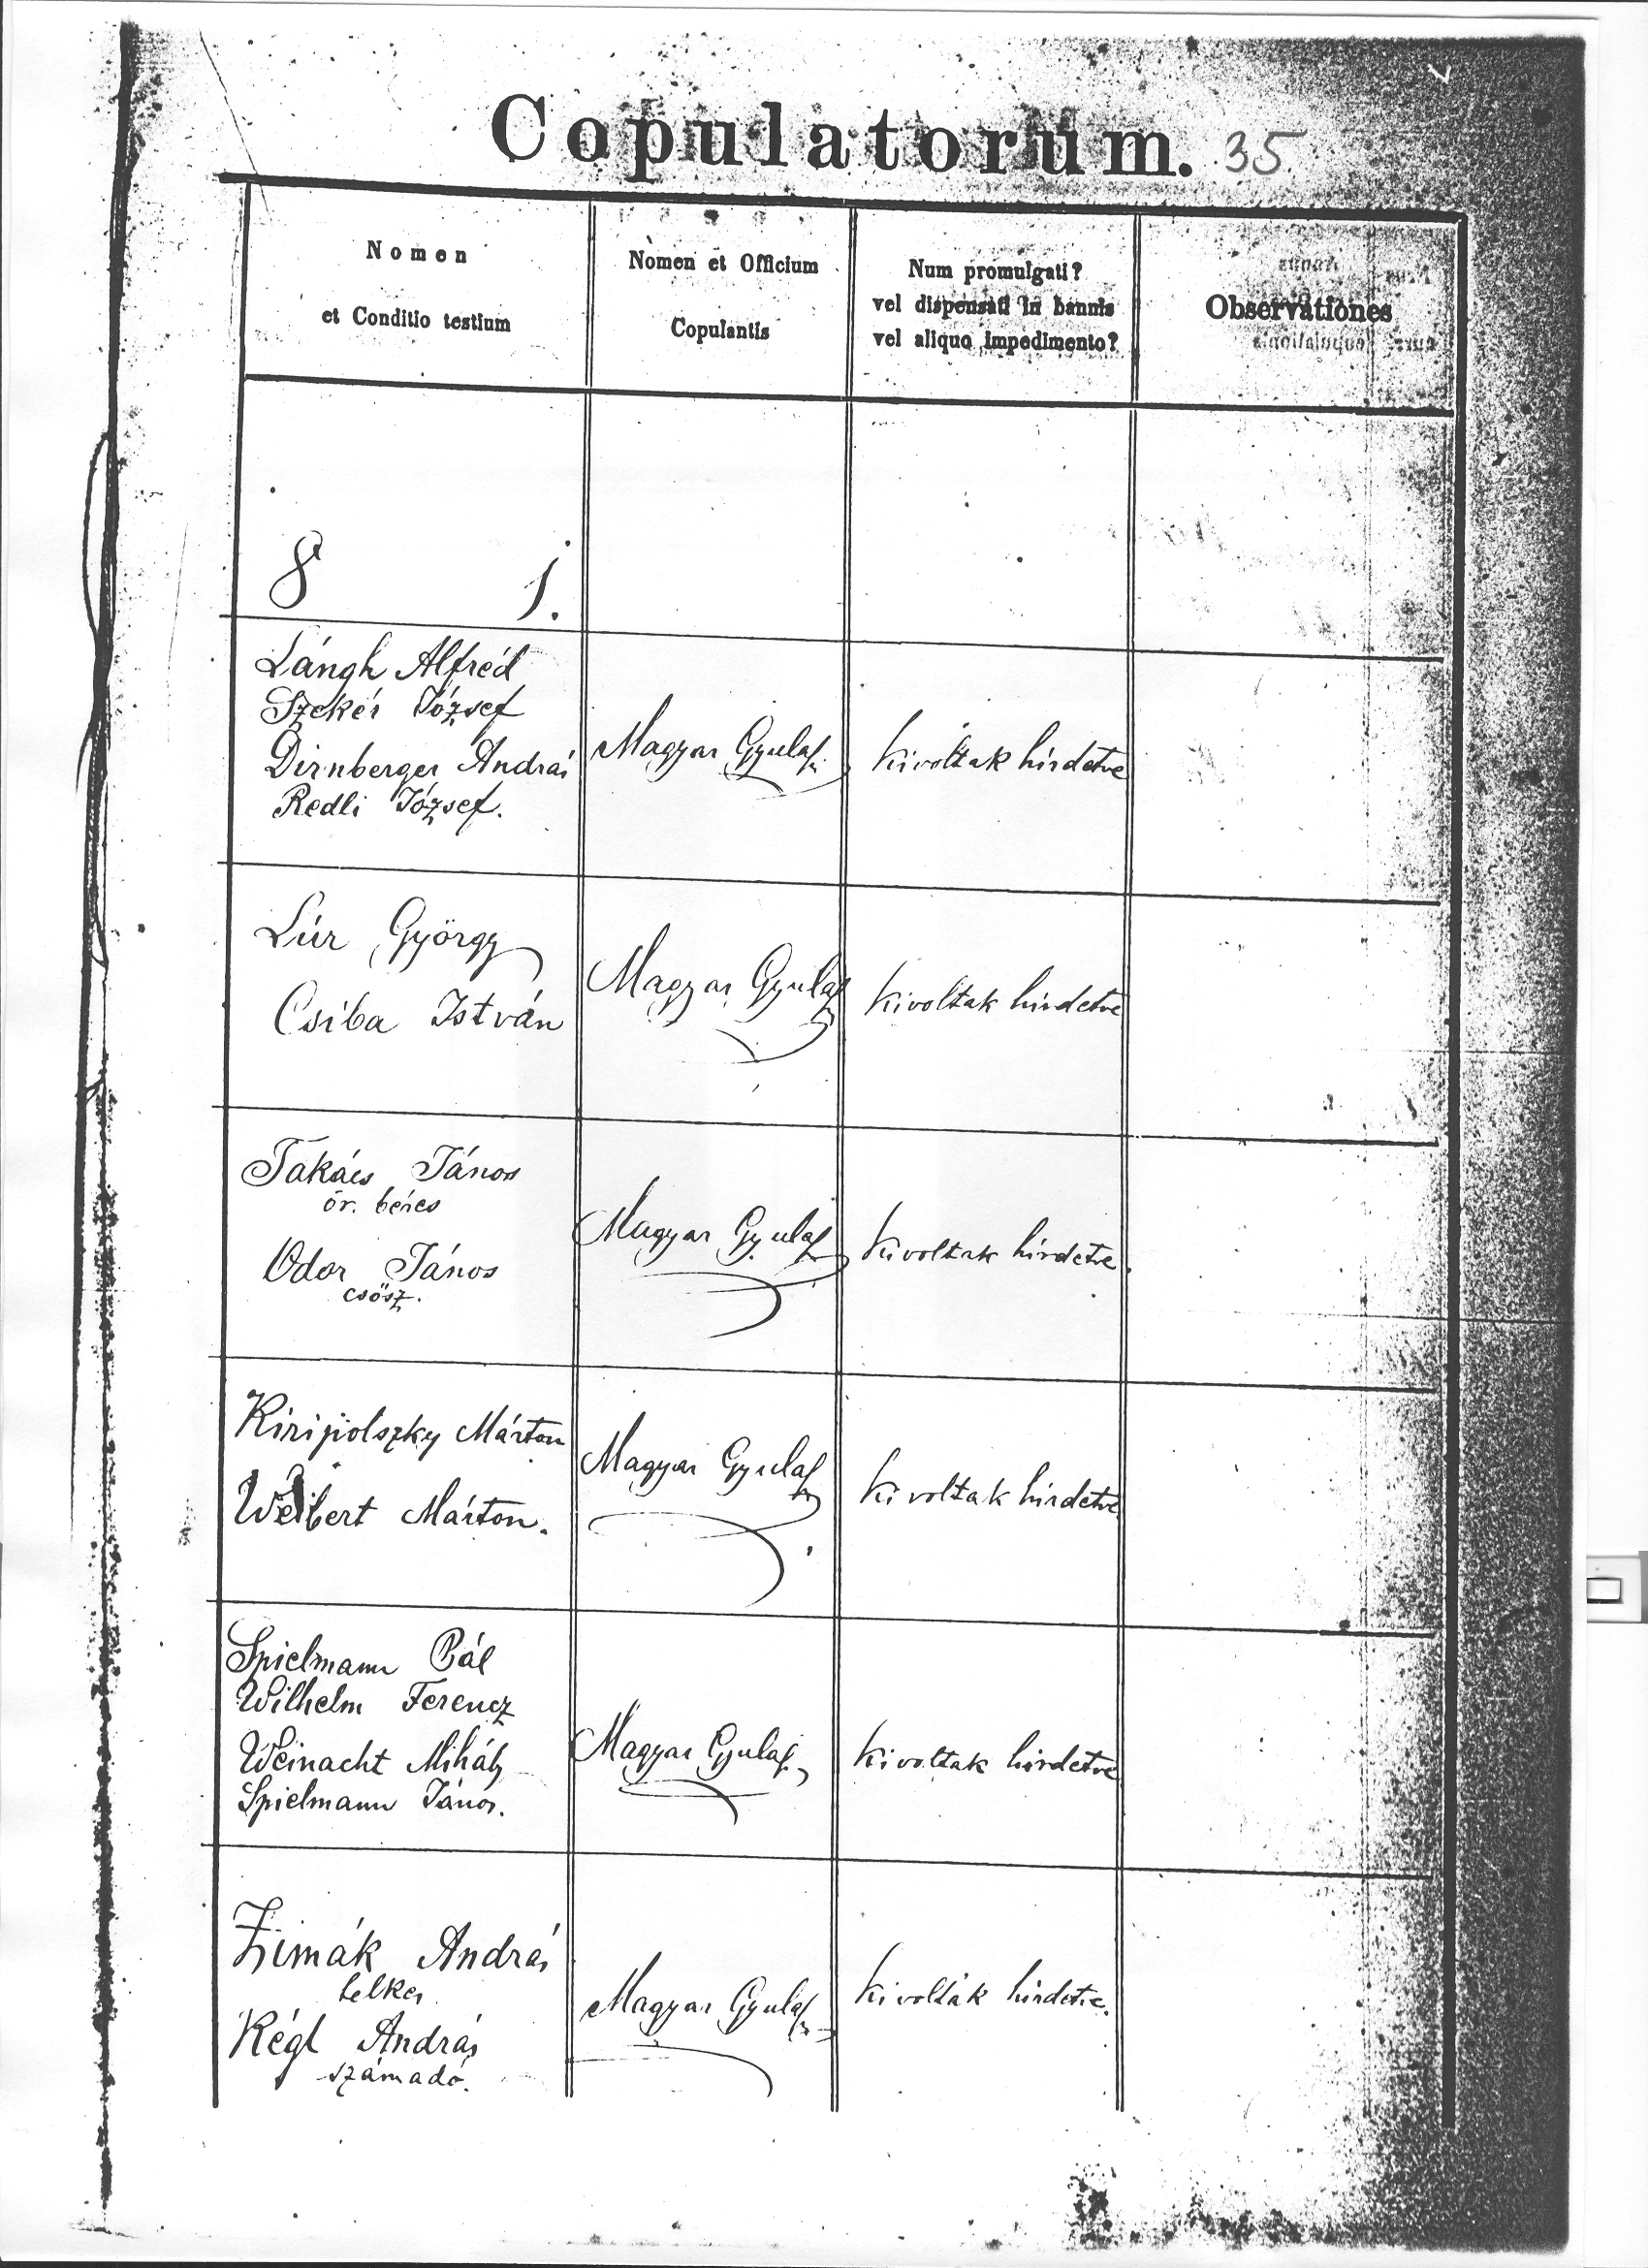 Copulatorum. 35
Nomen
et Conditio testium
Nomen et Officium
Copulantis
Num promulgati?
vel dispensati in bannis
vel aliquo impedimento?
Observationes
8 1.
Lángh Alfréd
Szekér József
Dirnberger András
Redli József.
Magyar Gyula
kivoltak hirdetve
Lúr György
Csiba István
Magyar Gyula
kivoltak hirdetve
Takács János
ör. béres
Odor János
csősz.
Magyar Gyula
kivoltak hirdetve.
Kiripolszky Márton
Weibert Márton.
Magyar Gyula
kivoltak hirdetve
Spielmann Pál
Wilhelm Ferencz
Weinacht Mihály
Spielmann János.
Magyar Gyula
kivoltak hirdetve
Zimák András
telkes
Régl András
számadó.
Magyar Gyula
kivoltak hirdetve.